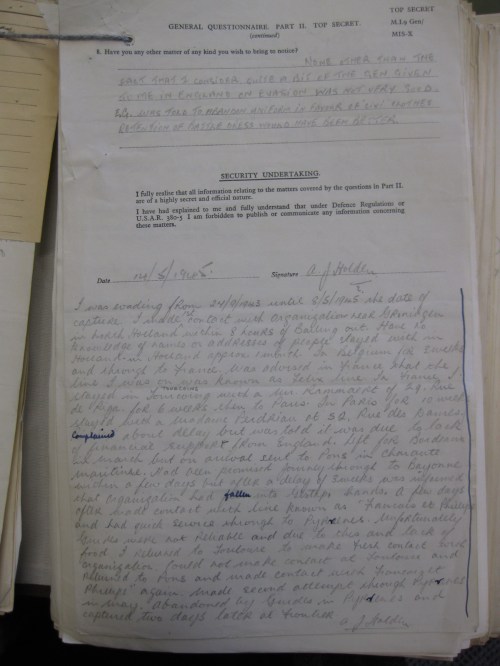 TOP SECRET
M.I.9 Gen/
MIS-X
GENERAL QUESTIONNAIRE, PART II. TOP SECRET.
(continued)
8. Have you any other matter of any kind you wish to bring to notice?
NONE OTHER THAN THE
FACT THAT I CONSIDER QUITE A BIT OF THE GEN GIVEN
TO ME IN ENGLAND ON EVASION WAS NOT VERY GOOD.
E.G. WAS TOLD TO ABANDON UNIFORM IN FAVOUR OF CIVI CLOTHES
OF BATTLE DRESS WOULD HAVE BEEN BETTER
SECURITY UNDERTAKING.
I fully realise that all information relating to the matters covered by the questions in Part II.
are of a highly secret and official nature.
I have had explained to me and fully understand that under Defence Regulations or
U.S.A.R. 380-5 I am forbidden to publish or communicate any information concerning
these matters.
Date /5/1945. Signature A J Holden
I was evading from 24/9/1943 until 8/5/1943 the date of
capture. I made contact with organization near Groningen
in north Holland within 8 hours of Bailing out. Have no
knowledge of names or addresses of people stayed with in
Holland. in Holland approx 1 month. In Belgium 1½ 2 weeks
and through to France. Was advised in France that the
line I was on was known as Felix line. In France I
stayed in Tourcoing with a Mrs of 29. Rue
de for 6 weeks then to Paris. In Paris for 10 weeks
stayed with a Madame of 32. Rue des
Complained about delay but was told it was due to lack
of financial support from England. Left for Bordeaux
in March but on arrival sent to Pons in Charante
maritime. Had been promised Journey through to Bayonne
within a few days but after a delay of 3 weeks was informed
that organization had fallen into Gestapo hands. A few days
after made contact with line known as "Francois et Phillipe"
and had quick service through to Pyrenees. Unfortunately
Guides were not reliable and due to this and lack of
food I returned to Toulouse to make fresh contact with
organization. Could not make contact at Toulouse and
returned to Pons and made contact with "Francois et
Phillipe" again. Made second attempt through Pyrenees
in May. abandoned by Guides in Pyrenees and
captured two days later at frontier.
A J Holden